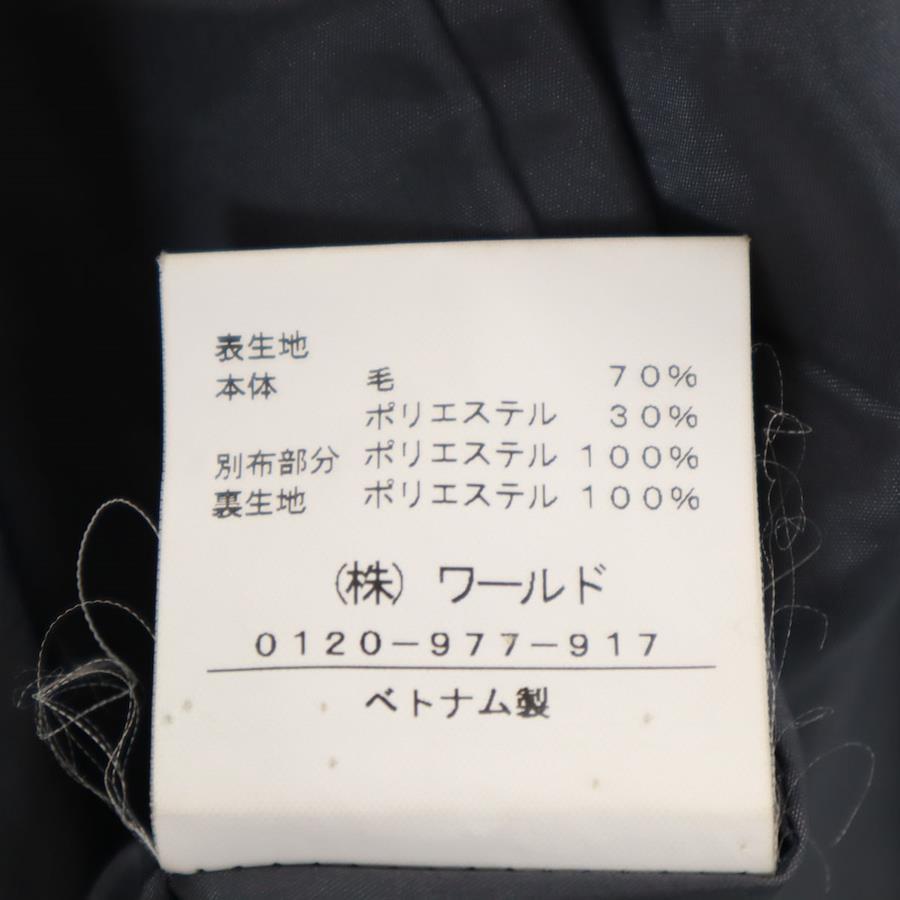 表生地
本体 毛 70%
ポリエステル 30%
別布部分 ポリエステル 100%
裏生地 ポリエステル 100%
(株) ワールド
0120-977-917
ベトナム製